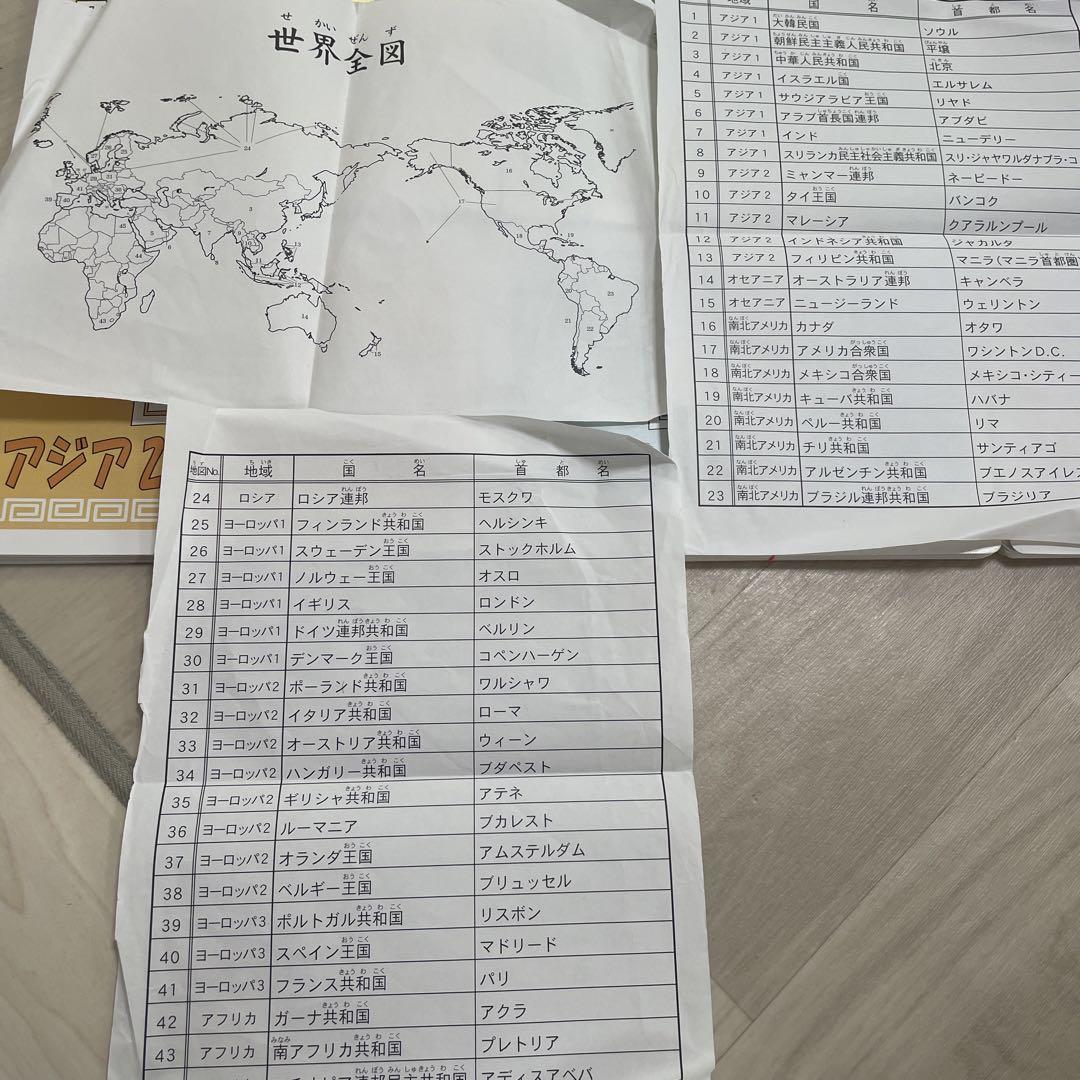 世界全図
せ かい ぜん ず
24
16
17
3
41
39
40
45
44
43
18
19
13
12
11
14
15
20
21
22
23
アジア2
地域 国名 首都名
1 アジア1 大韓民国 ソウル
2 アジア1 朝鮮民主主義人民共和国 平壌
3 アジア1 中華人民共和国 北京
4 アジア1 イスラエル国 エルサレム
5 アジア1 サウジアラビア王国 リヤド
6 アジア1 アラブ首長国連邦 アブダビ
7 アジア1 インド ニューデリー
8 アジア1 スリランカ民主社会主義共和国 スリ・ジャヤワルダナプラ・コ
9 アジア2 ミャンマー連邦 ネーピードー
10 アジア2 タイ王国 バンコク
11 アジア2 マレーシア クアラルンプール
12 アジア2 インドネシア共和国 ジャカルタ
13 アジア2 フィリピン共和国 マニラ(マニラ首都圏)
14 オセアニア オーストラリア連邦 キャンベラ
15 オセアニア ニュージーランド ウェリントン
16 南北アメリカ カナダ オタワ
17 南北アメリカ アメリカ合衆国 ワシントンD.C.
18 南北アメリカ メキシコ合衆国 メキシコ・シティー
19 南北アメリカ キューバ共和国 ハバナ
20 南北アメリカ ペルー共和国 リマ
21 南北アメリカ チリ共和国 サンティアゴ
22 南北アメリカ アルゼンチン共和国 ブエノスアイレス
23 南北アメリカ ブラジル連邦共和国 ブラジリア
地図No. 地域 国名 首都名
24 ロシア ロシア連邦 モスクワ
25 ヨーロッパ1 フィンランド共和国 ヘルシンキ
26 ヨーロッパ1 スウェーデン王国 ストックホルム
27 ヨーロッパ1 ノルウェー王国 オスロ
28 ヨーロッパ1 イギリス ロンドン
29 ヨーロッパ1 ドイツ連邦共和国 ベルリン
30 ヨーロッパ1 デンマーク王国 コペンハーゲン
31 ヨーロッパ2 ポーランド共和国 ワルシャワ
32 ヨーロッパ2 イタリア共和国 ローマ
33 ヨーロッパ2 オーストリア共和国 ウィーン
34 ヨーロッパ2 ハンガリー共和国 ブダペスト
35 ヨーロッパ2 ギリシャ共和国 アテネ
36 ヨーロッパ2 ルーマニア ブカレスト
37 ヨーロッパ2 オランダ王国 アムステルダム
38 ヨーロッパ2 ベルギー王国 ブリュッセル
39 ヨーロッパ3 ポルトガル共和国 リスボン
40 ヨーロッパ3 スペイン王国 マドリード
41 ヨーロッパ3 フランス共和国 パリ
42 アフリカ ガーナ共和国 アクラ
43 アフリカ 南アフリカ共和国 プレトリア
連邦民主共和国 アディスアベバ